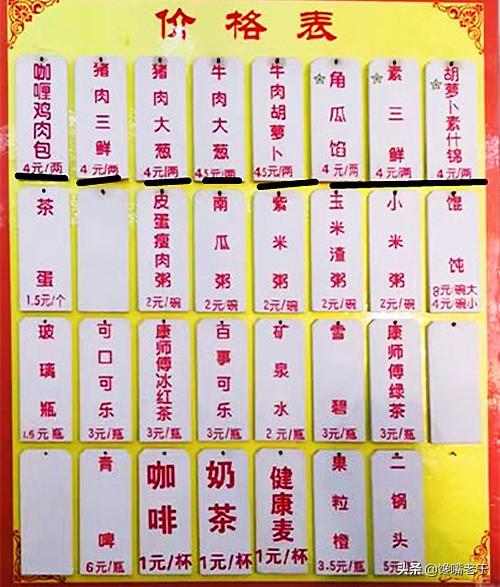 价格表
咖喱鸡肉包 4元/两
猪肉三鲜 4元/两
猪肉大葱 4元/两
牛肉大葱 4.5元/两
牛肉胡萝卜 4.5元/两
角瓜馅 4元/两
素三鲜 4元/两
胡萝卜素什锦 4元/两
茶蛋 1.5元/个
皮蛋瘦肉粥 2元/碗
南瓜粥 2元/碗
紫米粥 2元/碗
玉米渣粥 2元/碗
小米粥 2元/碗
馄饨 8元/碗大 4元/碗小
玻璃瓶 1.5元/瓶
可口可乐 3元/瓶
康师傅冰红茶 3元/瓶
百事可乐 3元/瓶
矿泉水 2元/瓶
雪碧 3元/瓶
康师傅绿茶 3元/瓶
膏啤 6元/瓶
咖啡 1元/杯
奶茶 1元/杯
健康麦 1元/杯
果粒橙 3.5元/瓶
二锅头 5元/
头条@馋嘴老于